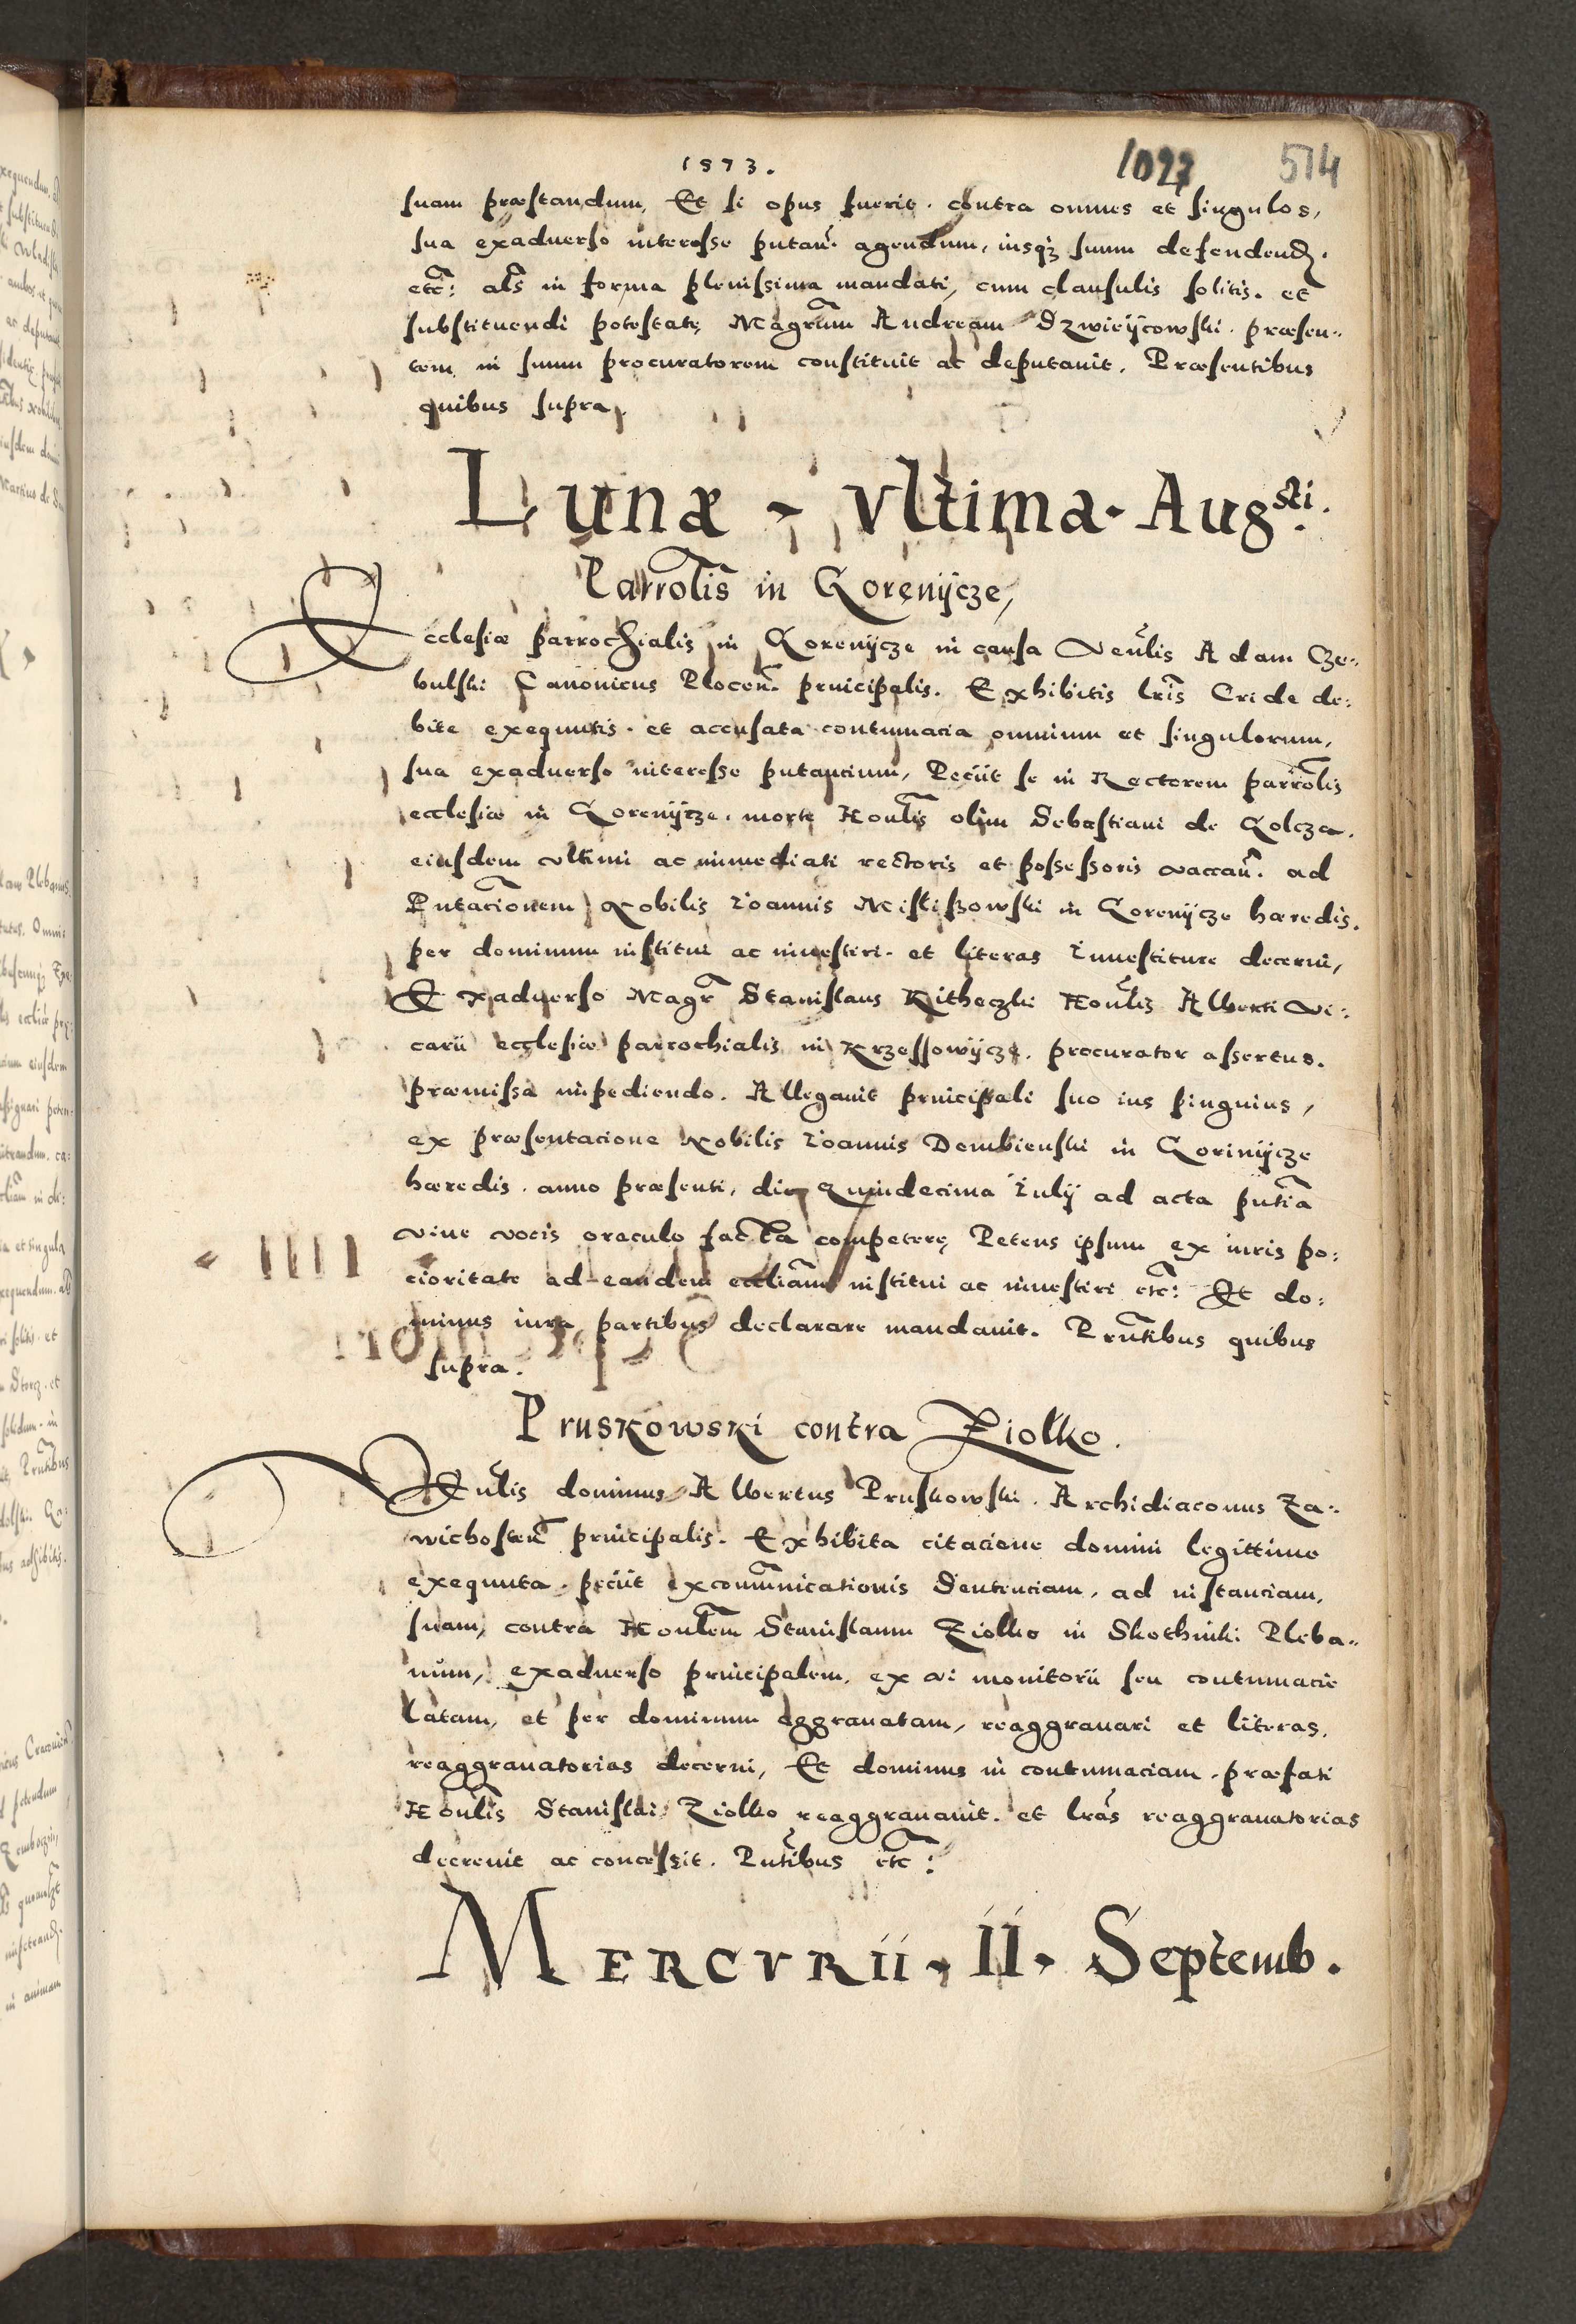 1573.
1027
514
suam præstandum, Et si opus fuerit. contra omnes et singulos,
sua exaduerso interesse putañ. agendum, iusqȝ suum defendend.
etc̃: als̃ in forma plenissima mandati, cum clausulis solitis. et
substituendi potestate, Magr̃um Andream Dzwieÿcowski. præsen..
tem in suum procuratorem constituit ac deputauit. Præsentibus
quibus supra.
Lunæ - vltima. Aug<sup>sti</sup>.
Parrol̃is in Gorenÿcze,
Ecclesiæ parrochialis in Gorenÿcze in causa Veñlis Adam Cze..
bulski Canonicus Ploceñ. principalis. Exhibitis lr̃is Cride de:
bite exequutis. et accusata contumacia omnium et singulorum,
sua exaduerso interesse putantium, Petiit se in Rectorem parrol̃is
ecclesiæ in Gorenÿcze. morte Honl̃is olim Sebastiani de Golcza.
eiusdem vltimi ac immediati rectoris et possessoris vaccañ. ad
Pñtac̃ionem Nobilis Ioannis Misliszowski in Gorenÿcze hæredis.
per dominum institui ac inuestiri. et literas Inuestiture decerni,
Exaduerso Magr̃ Stanislaus Kitheczki Honl̃is Alberti vi:
carii ecclesiæ parrochialis in Krzessowÿcze. procurator assertus.
præmissa impediendo. Allegauit principali suo ius pinguius,
ex præsentacione Nobilis Ioannis Dembienski in Gorinÿcze
hæredis. anno præsenti, die Quindecima Iulÿ ad acta pñtia
viue vocis oraculo facta competere, Petens ipsum ex iuris po:
cioritate ad eandem eccl̃iam institui ac inuestiri etc̃: Et do:
minus iura partibus declarare mandauit. Prñtibus quibus
supra.
Pruskowski contra Ziolko.
Veñlis dominus Albertus Pruskowski. Archidiaconus Za..
wichosteñ principalis. Exhibita citacione domini legittime
exequuta. petiit excom̃unicationis Sententiam, ad instanciam,
suam, contra Honl̃em Stanislaum Ziolko in Skothniki Pleba..
num, exaduerso principalem, ex vi monitorii seu contumacie
latam, et per dominum aggrauatam, reaggrauari et literas,
reaggrauatorias decerni, Et dominus in contumaciam. præfati
Honl̃is Stanislai Ziolko reaggrauauit. et lr̃as reaggrauatorias
decreuit ac concessit. Pñtibus etc̃:
Mercvrii. II. Septemb.